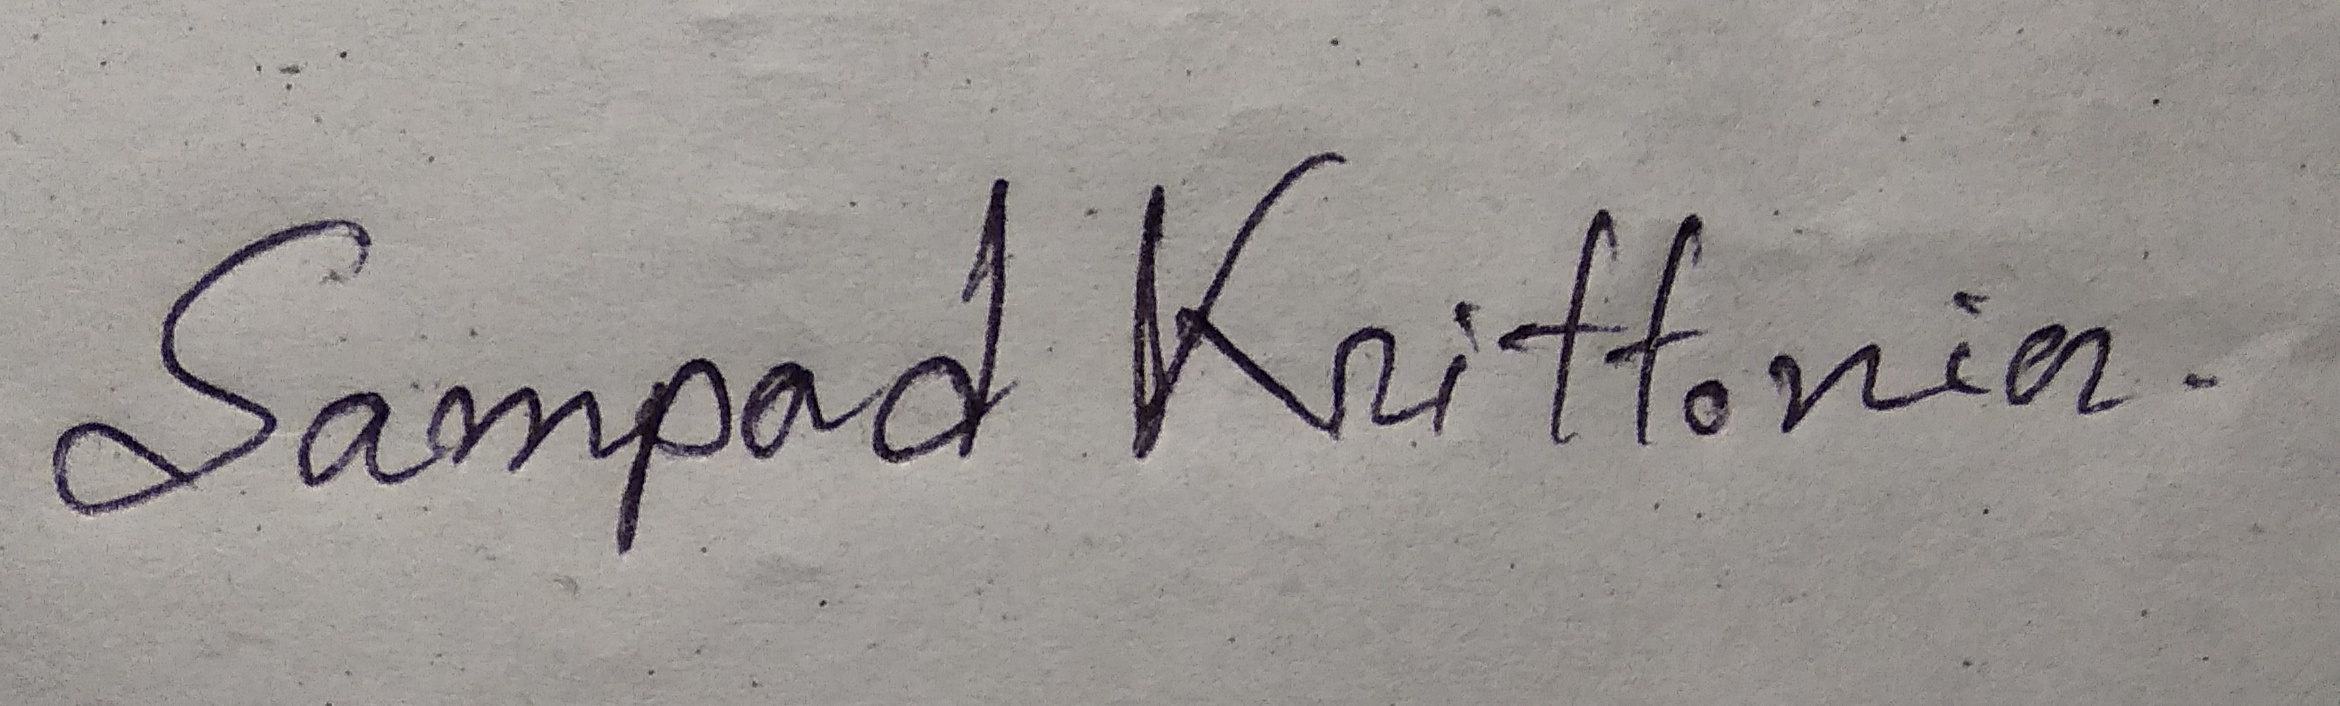 Sampad Krittonia.